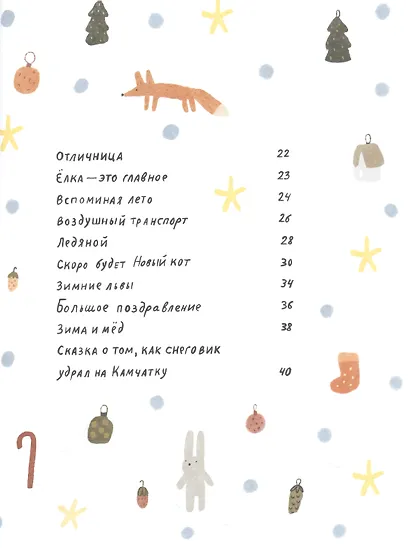 Отличница 22
Ёлка — это главное 23
Вспоминая лето 24
Воздушный транспорт 26
Ледяной 28
Скоро будет Новый кот 30
Зимние львы 34
Большое поздравление 36
Зима и мёд 38
Сказка о том, как снеговик
удрал на Камчатку 40